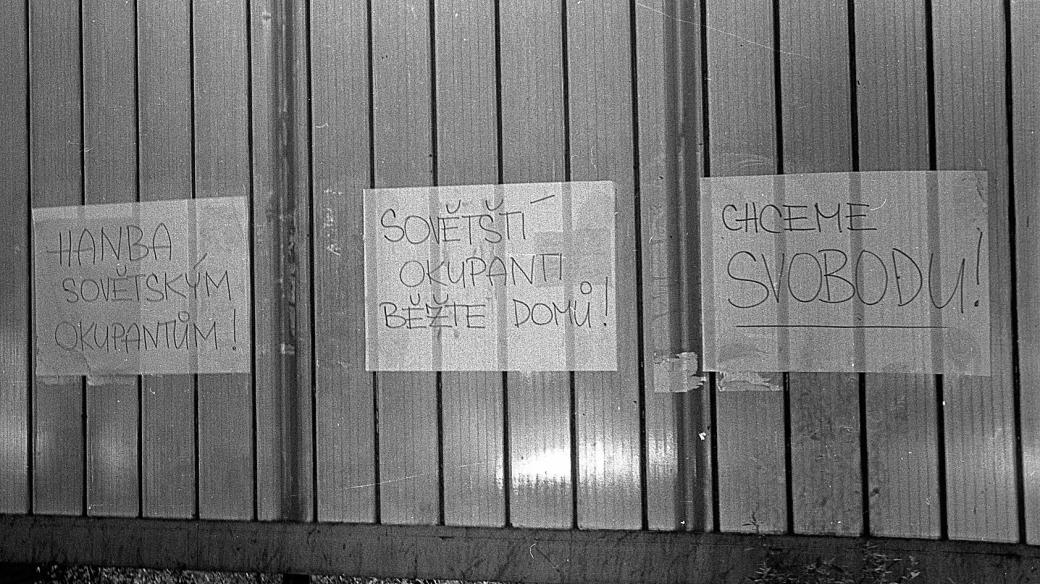 HANBA
SOVĚTSKÝM
OKUPANTŮM!
SOVĚTŠTÍ
OKUPANTI
BĚŽTE DOMŮ!
CHCEME
SVOBODU!